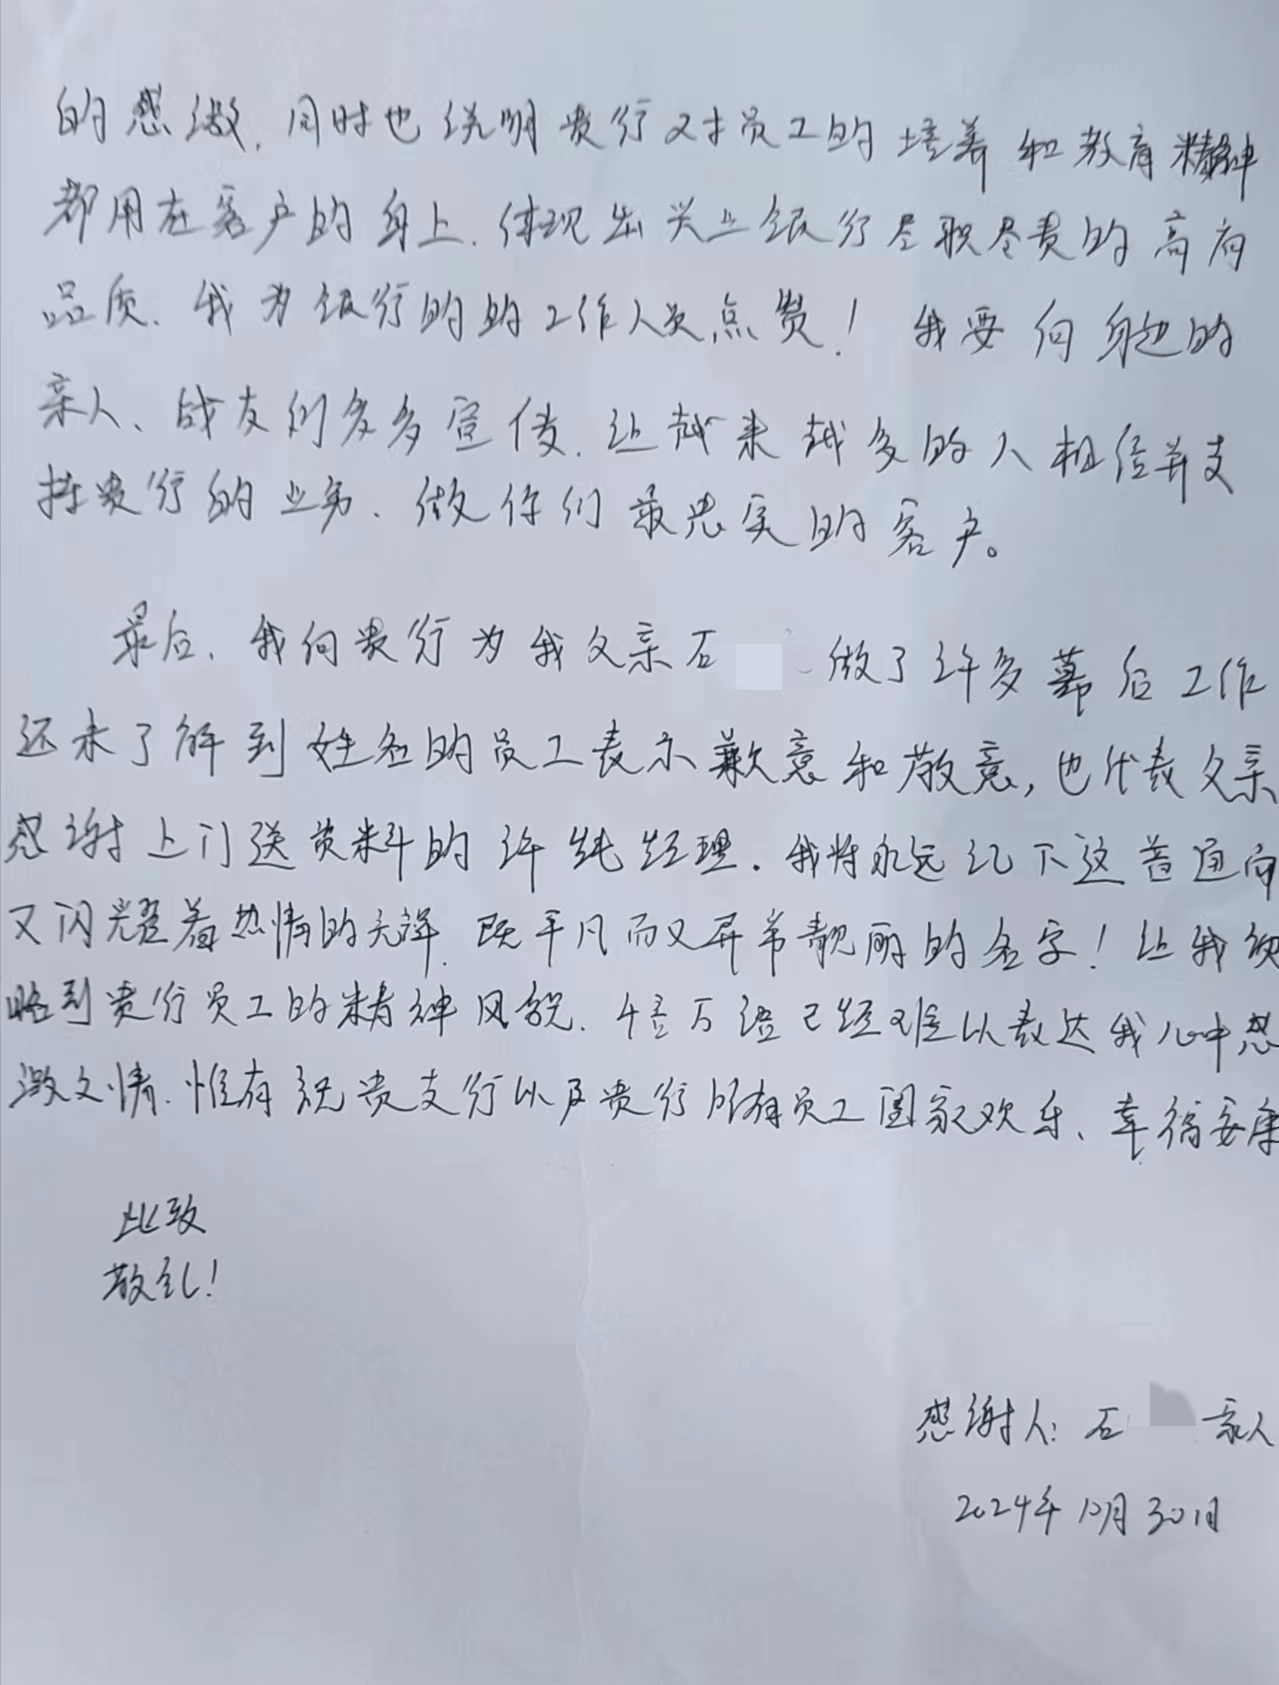 的感激，同时也说明贵行对员工的培养和教育精神
都用在客户的身上，体现出兴业银行尽职尽责的高尚
品质，我为银行的的工作人员点赞！我要向身边的
亲人、战友们多多宣传，让越来越多的人相信并支
持贵行的业务，做你们最忠实的客户。
最后，我向贵行为我父亲石 做了许多幕后工作
还未了解到姓名的员工表示歉意和敬意，也代表父亲
感谢上门送资料的许纯经理。我将永远记下这普通而
又闪耀着热情的光辉，既平凡而又异常靓丽的名字！让我领
略到贵行员工的精神风貌，千言万语已经难以表达我心中感
激之情，惟有祝贵支行以及贵行所有员工阖家欢乐、幸福安康
此致
敬礼！
感谢人：石 家人
2024年10月30日